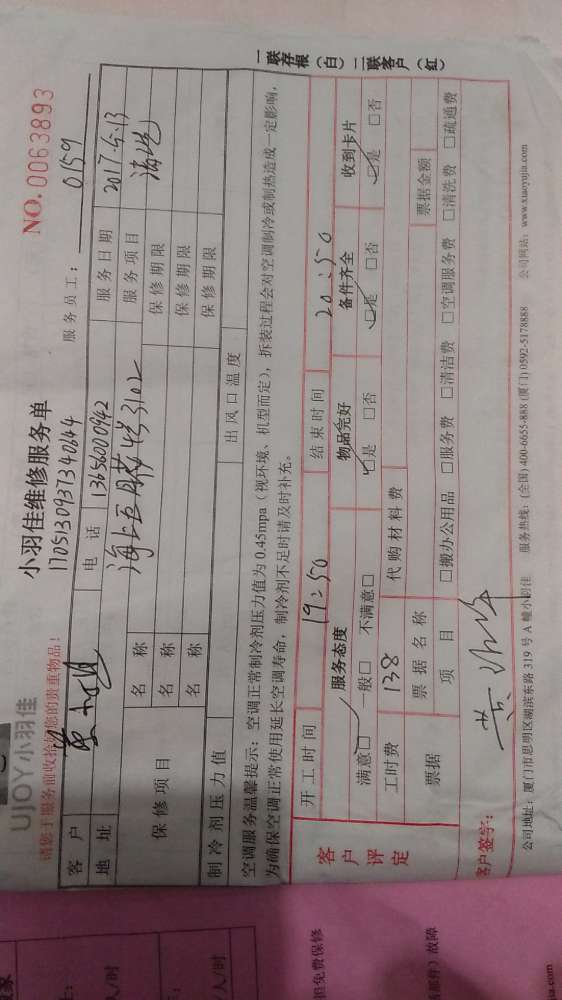 UJOY小羽佳
小羽佳维修服务单
NO.0063893
1705130937340144
请您于服务前收拾好您的贵重物品！
服务员工：0159
客户
电话 13656000942
服务日期 2017.5.13
地址 海上五月花4号3102
服务项目 清洗
保修项目
名称 保修期限
名称 保修期限
名称 保修期限
制冷剂压力值 出风口温度
空调服务温馨提示：空调正常制冷剂压力值为 0.45mpa（视环境、机型而定），拆装过程会对空调制冷或制热造成一定影响，
为确保空调正常使用延长空调寿命，制冷剂不足时请及时补充。
开工时间 19:50 结束时间 20:50
客户评定
服务态度 物品完好 备件齐全 收到卡片
满意□ 一般□ 不满意□ □是 □否 □是 □否 □是 □否
工时费 138 代购材料费
票据 票据名称 票据金额
项目 □搬办公用品 □服务费 □清洁费 □空调服务费 □清洗费 □疏通费
客户签字：
公司地址：厦门市思明区湖滨东路 319 号 A 幢小羽佳 服务热线：(全国) 400-6655-888 (厦门) 0592-5178888 公司网站：www.xiaoyujia.com
一联存根（白）二联客户（红）
人/时
人/时
担免费保修
部件）故障
jia.com